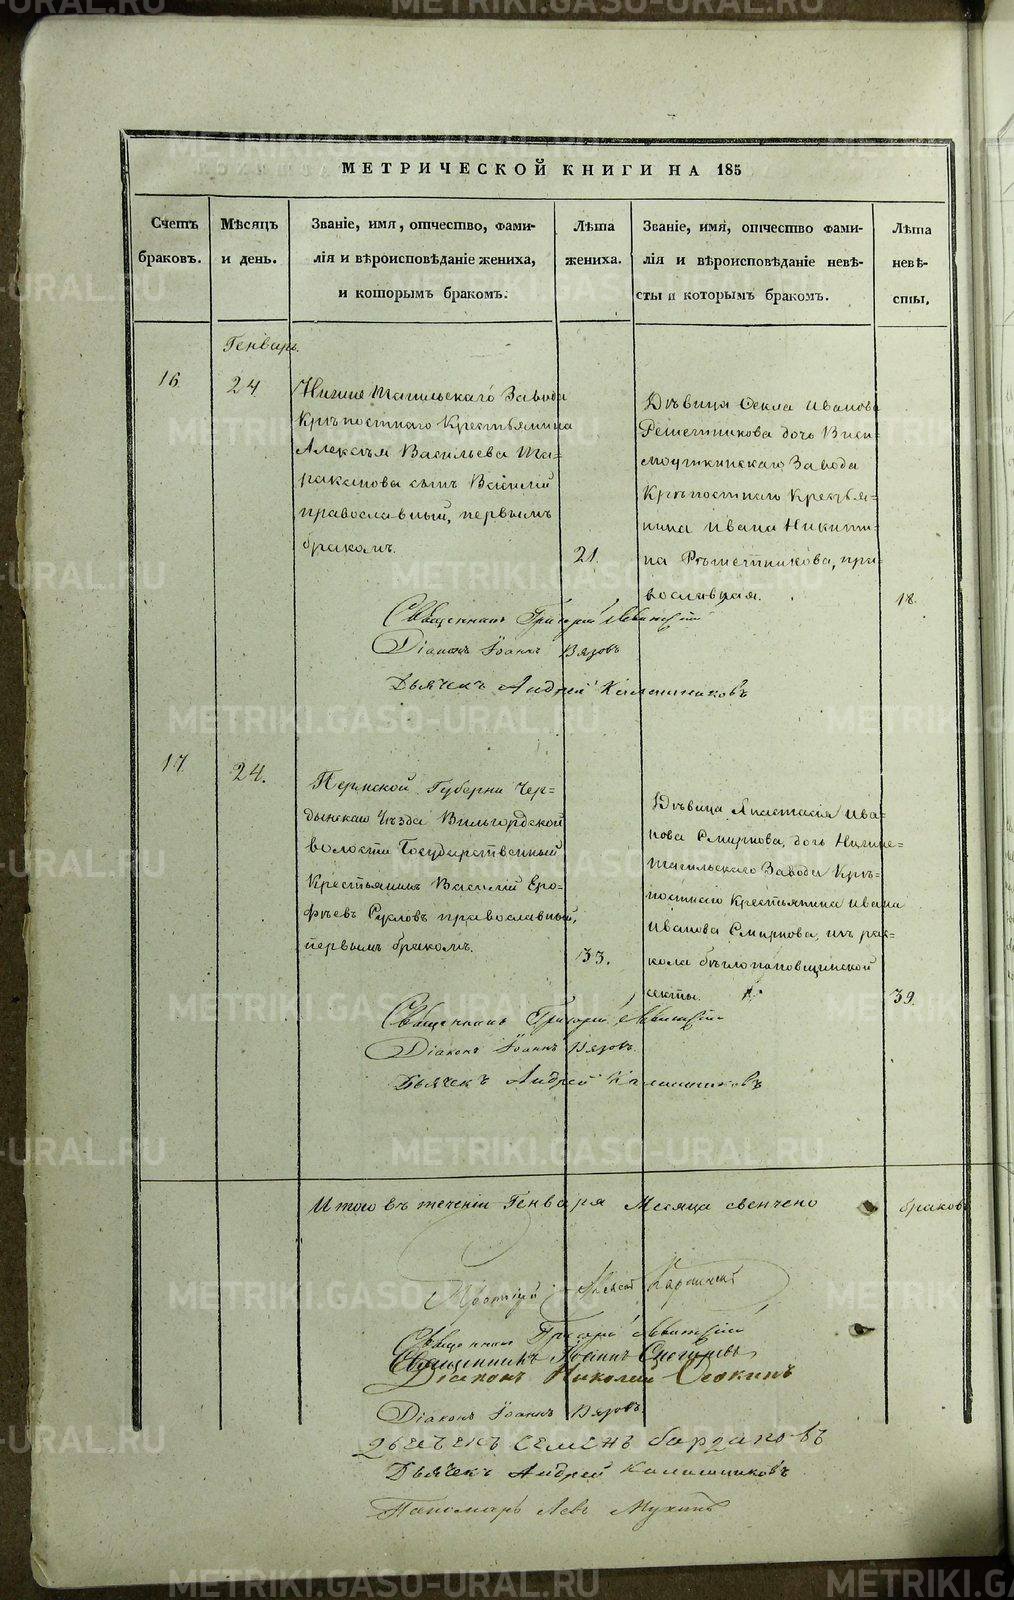 METRIKI.GASO-URAL.RU
МЕТРИЧЕСКОЙ КНИГИ НА 185
Счетъ браковъ.
Мѣсяцъ и день.
Званіе, имя, отчество, фами-
лія и вѣроисповѣданіе жениха,
и которымъ бракомъ.
Лѣта жениха.
Званіе, имя, отчество фами-
лія и вѣроисповѣданіе невѣ-
сты и которымъ бракомъ.
Лѣта невѣ-
сты.
Генварь.
16.
24
Нижне Тагильскаго Завода
Крѣпостнаго Крестьянина
Алексѣя Васильева Та-
раканова сынъ Василій
православный, первымъ
бракомъ.
21.
Дѣвица Фекла Иванова
Решетникова дочь Виси-
моуткинскаго Завода
Крѣпостнаго Крестья-
нина Ивана Никити-
на Рѣшетникова, пра-
вославная.
18.
Священникъ Григорій Левитскій
Діаконъ Іоаннъ Вязовъ
Дьячекъ Андрей Калашниковъ
17
24.
Пермской Губерни Чер-
дынскаго Уѣзда Вильгордской
волости Государственный
Крестьянинъ Василій Еро-
фѣевъ Суслов православный,
первымъ бракомъ.
33.
Дѣвица Анастасія Ива-
нова Смирнова, дочь Нижне-
тагильскаго Завода Крѣ-
постнаго Крестьянина Ивана
Иванова Смирнова, изъ рас-
кола бѣглопоповщинской
секты.
39.
Священникъ Григорій Левитскій
Діаконъ Іоаннъ Вязовъ.
Дьячекъ Андрей Калашниковъ
Итого въ теченіи Генваря Месяца свенчено
браковъ
Протоіерей Алексѣй
Священникъ Григорій Левитскій
Священникъ Іоаннъ
Діаконъ Николай Осокинъ
Діаконъ Іоаннъ Вязовъ.
Дьечекъ Семенъ
Дьячекъ Андрей Калашниковъ
Пономарь Левъ Мухинъ